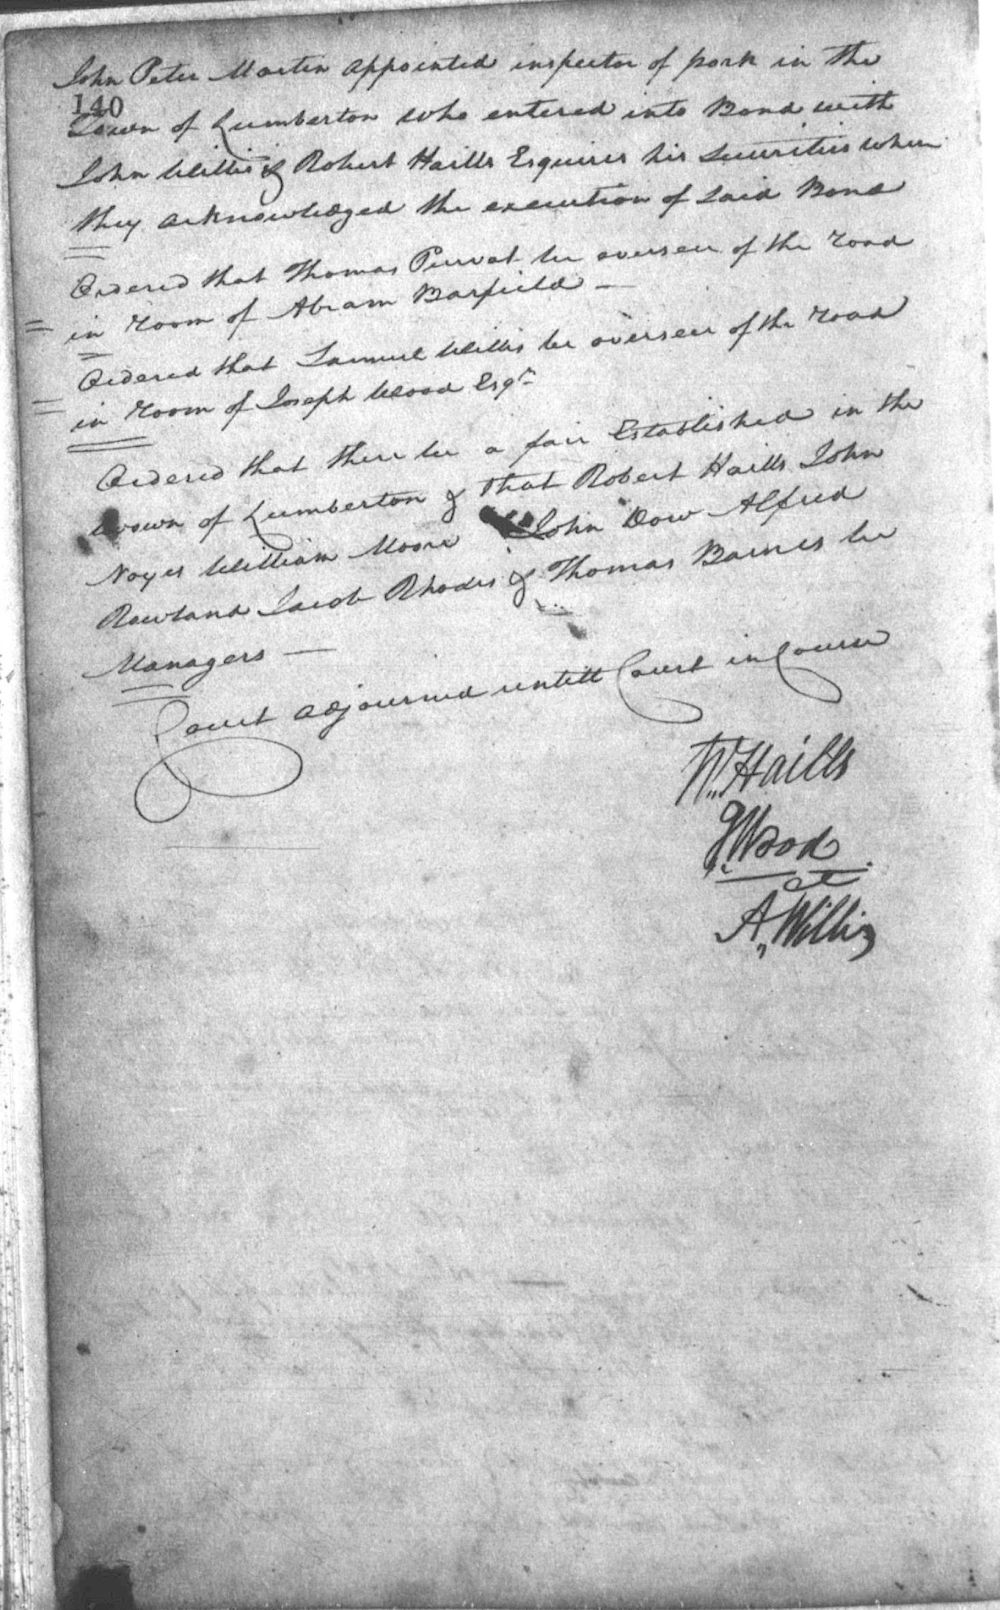 John Peter Martin appointed inspector of pork in the
140
Town of Lumberton who entered into Bond with
John Willis & Robert Haills Esquires his securities when
they acknowledged the execution of said Bond
Ordered that Thomas Purvat be overseer of the road
in room of Abram Barfield —
Ordered that Samuel Willis be overseer of the road
in room of Joseph Wood Esqr
Ordered that there be a fair Established in the
town of Lumberton & that Robert Haills John
Noyes William Moore John Dow Alfred
Rowland Jacob Rhodes & Thomas Barnes be
Managers —
Court adjourned untill Court in Course
R. Haills
J. Wood
A. Willis